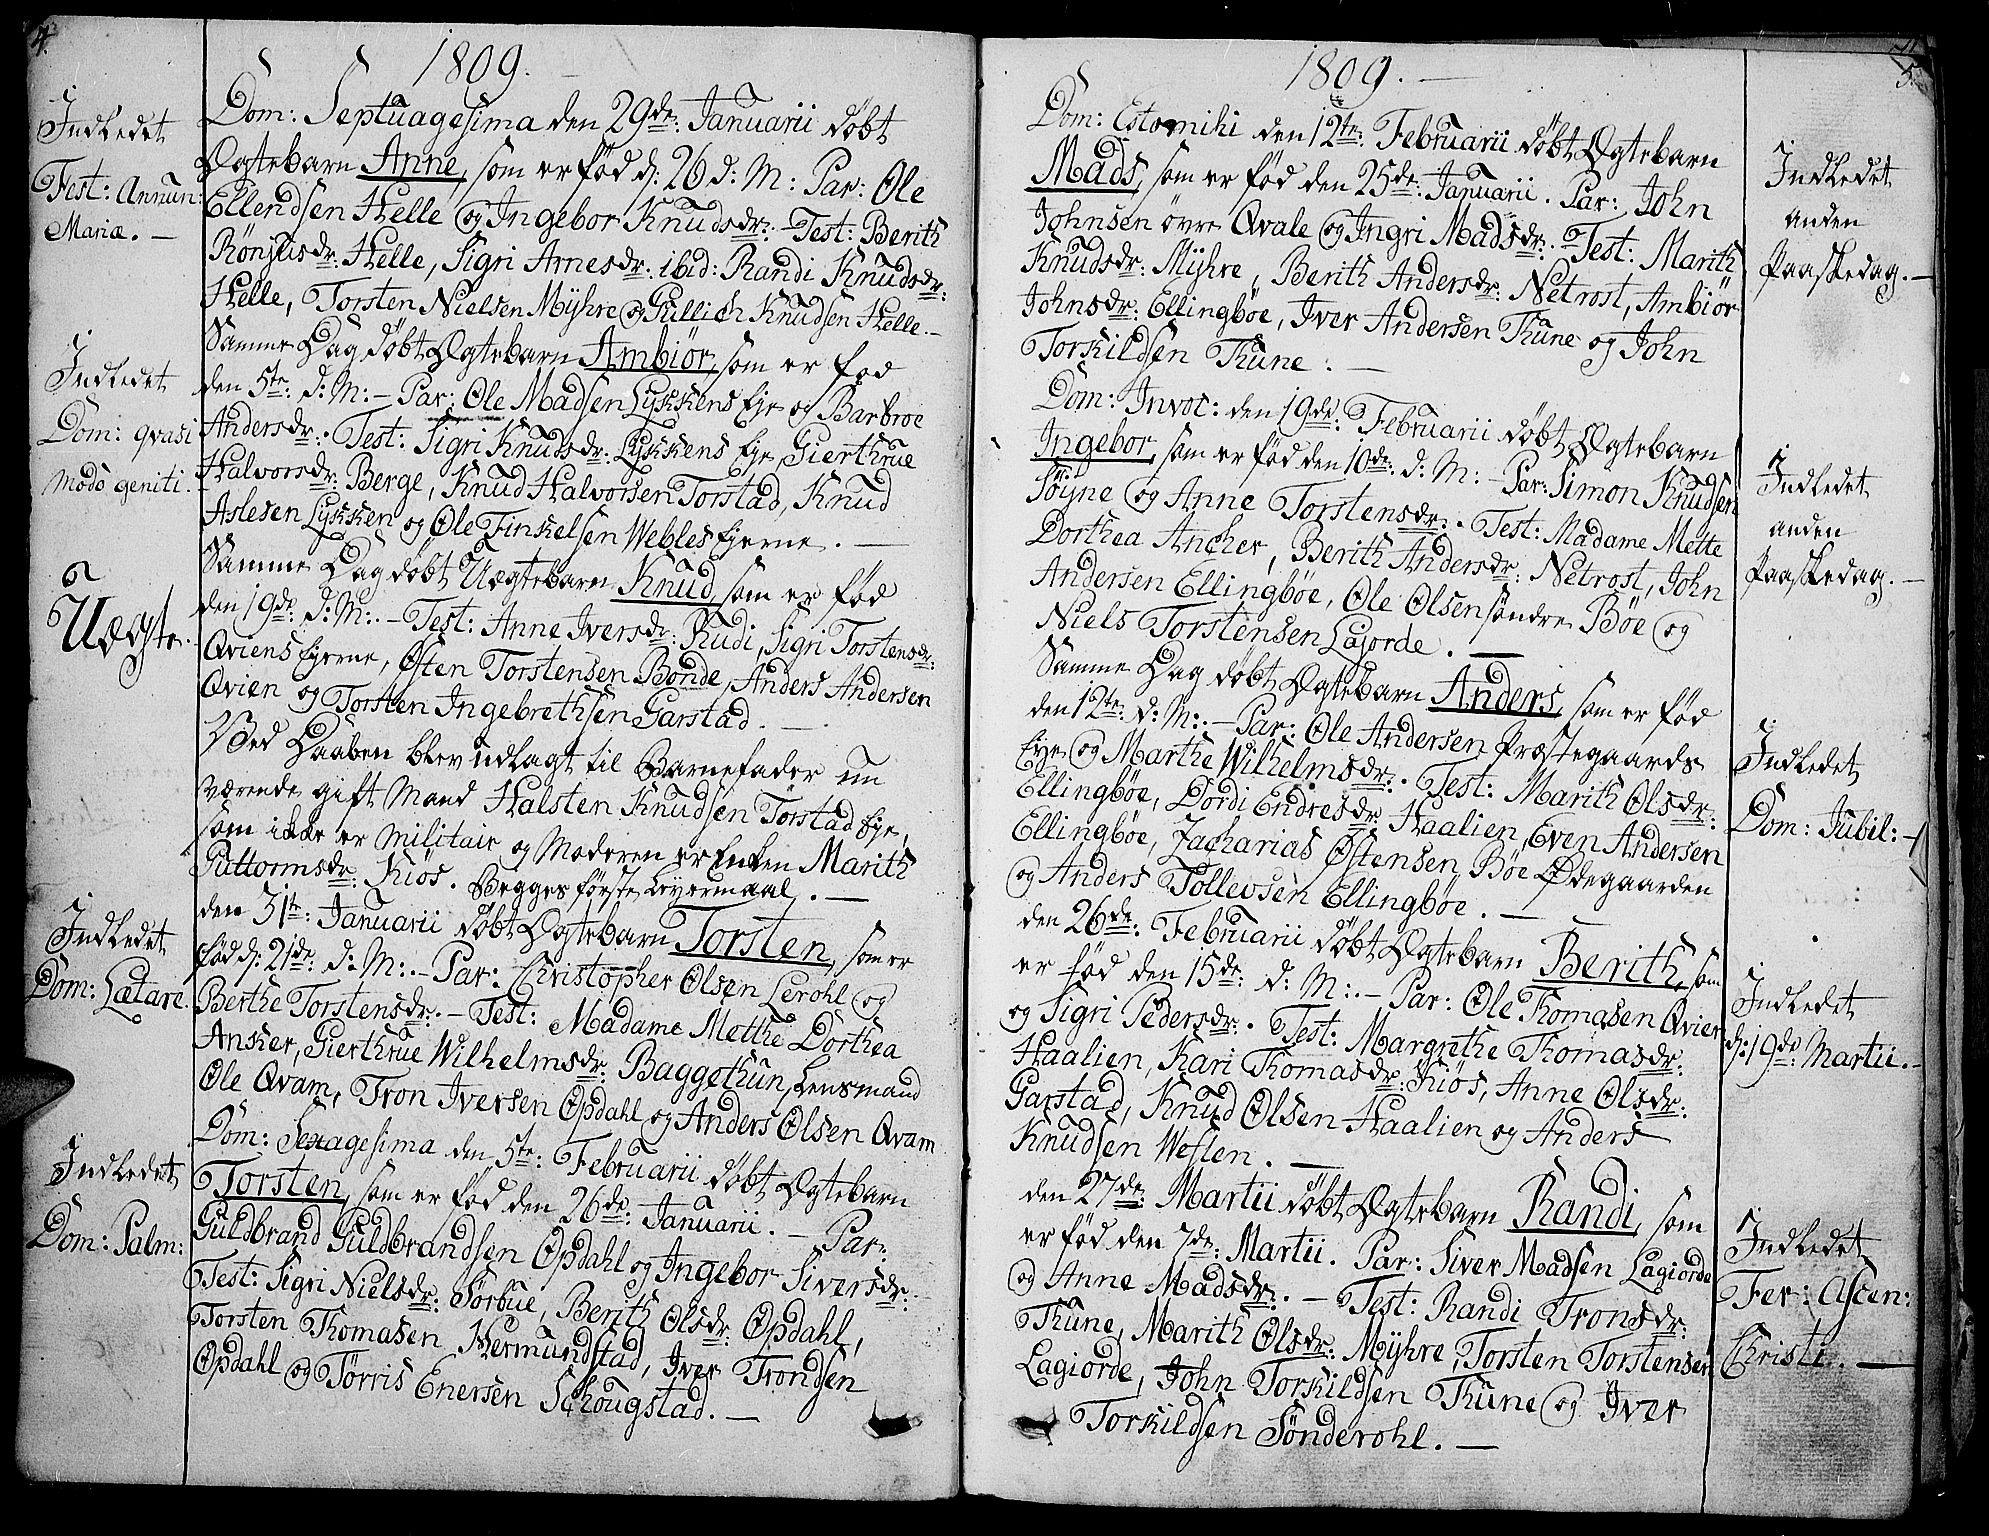 4.
1809.
Indledet
Fest: Annun:
Mariæ. —
Dom: Septuagesima den 29de: Januarii döbt
Ægtebarn Anne, som er föd d: 26 d: M: Par: Ole
Ellendsen Helle og Ingebor Knudsdr: - Test: Berith
Rönjusdr: Helle, Sigri Arnesdr: ibid: Randi Knudsdr:
Helle, Torsten Nielsen Mÿhre og Gullich Knudsen Helle. —
Indledet
Dom: qvasi
modo geniti. —
Samme Dag döbt Ægtebarn Ambiör, som er föd
den 5te: d: M: - Par: Ole Madsen Lykkens Eje og Barbroe
Andersdr: . Test: Sigri Knudsdr: Lykkens Eje, Gierthrue
Halvorsdr: Berge, Knud Halvorsen Torstad, Knud
Aslesen Lykken og Ole Finkelsen Webles Ejerne. —
Uægte.
Samme Dag döbt Uægtebarn Knud, som er föd
den 19de: d: M: - Test: Anne Iversdr: Rudi, Sigri Torstensdr:
Qviens Ejerne, Østen Torstensen Bonde, Anders Andersen
Qvien og Torsten Ingebrethsen Garstad. —
Ved Daaben blev udlagt til Barnefader nu
værende gift Mand Halsten Knudsen Torstad Eje,
som ikke er militair og Moderen er Enken Marith
Guttormsdr: Kiös. Begges förste Leyermaal. —
Indledet
Dom: Lætare.
den 31te: Januarii döbt Ægtebarn Torsten, som er
föd d: 21de: d: M: - Par: Christopher Olsen Lerohl og
Berthe Torstensdr: - Test: Madame Metthe Dorthea
Anker, Gierthrue Wilhelmsdr: Baggethun, Lensmand
Ole Qvam, Tron Iversen Opdahl og Anders Olsen Qvam
Indledet
Dom: Palm:
Dom: Sexagesima den 5te: Februarii döbt Ægtebarn
Torsten, som er föd den 26de: Januarii. - Par:
Guldbrand Guldbrandsen Opdahl og Ingebor Siversdr:
Test: Sigri Nielsdr: Sörbue, Berith Olsdr: Opdahl,
Torsten Thomasen Hermundstad, Iver Trondsen
Opdahl og Törris Enersen Schougstad. —
5.
1809. —
Dom: Estomihi den 12te: Februarii döbt Ægtebarn
Mads, som er föd den 25de: Januarii. Par: John
Johnsen övre Qvale og Ingri Madsdr: - Test: Marith
Knudsdr: Mÿhre, Berith Andersdr: Netrost, Ambiör
Johnsdr: Ellingböe, Iver Andersen Thune og John
Torkildsen Thune. —
Indledet
anden
Paaskedag. —
Dom: Invoc: den 19de: Februarii döbt Ægtebarn
Ingebor, som er föd den 10de: d: M: - Par: Simon Knudsen
Föyne og Anne Torstensdr: . Test: Madame Mette
Dorthea Ancher, Berith Andersdr: Netrost, John
Andersen Ellingböe, Ole Olsen söndre Böe og
Niels Torstensen Lajorde. —
Indledet
anden
Paaskedag. —
Samme Dag döbt Ægtebarn Anders, som er föd
den 12te: d: M: - Par: Ole Andersen Præstegaards
Eje og Marthe Wilhelmsdr: . Test: Marith Olsdr:
Ellingböe, Dordi Endresdr: Haalien, Even Andersen
Ellingböe, Zacharias Østensen Böe Ødegaarden
og Anders Tollevsen Ellingböe. —
Indledet
Dom: Jubil: —
den 26de: Februarii döbt Ægtebarn Berith, som
er föd den 15de: d: M: - Par: Ole Thomasen Qvien
og Sigri Pedersdr: . Test: Margrethe Thomasdr:
Haalien, Kari Thomasdr: Kiös, Anne Olsdr:
Garstad, Knud Olsen Haalien og Anders
Knudsen Weflen. —
Indledet
d: 19de Martii. —
den 27de: Martii döbt Ægtebarn Randi, som
er föd den 7de: Martii. Par: Siver Madsen Lagiorde
og Anne Madsdr: . - Test: Randi Tronsdr:
Thune, Marith Olsdr: Mÿhre, Torsten Torstensen
Lagiorde, John Torkildsen Thune og Iver
Torkildsen Sönderohl. —
Indledet
Fer: Ascen:
Christi. —